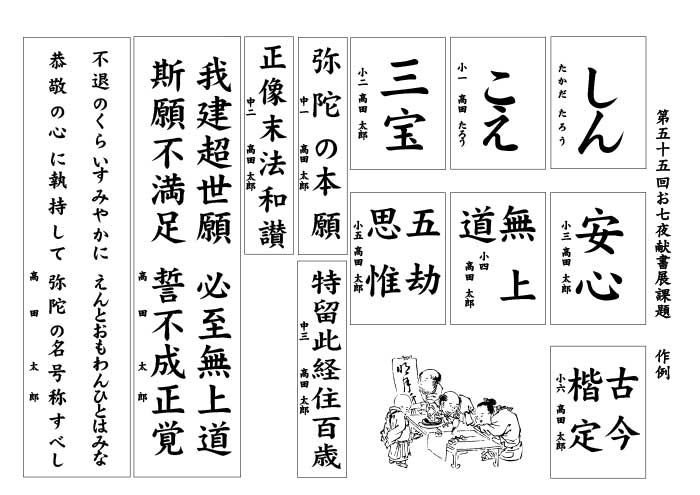 第五十五回お七夜献書展課題　作例
しん
たかだ　たろう
こえ
小一　高田　たろう
三宝
小二　高田　太郎
安心
小三　高田　太郎
無上
道
小四
高田　太郎
五劫
思惟
小五　高田　太郎
古今
楷定
小六　高田　太郎
弥陀の本願
中一　高田　太郎
正像末法和讃
中二　高田　太郎
特留此経住百歳
中三　高田　太郎
我建超世願　必至無上道
斯願不満足　誓不成正覚
高田　太郎
不退のくらいすみやかに　えんとおもわんひとはみな
恭敬の心に執持して　弥陀の名号称すべし
高田　太郎